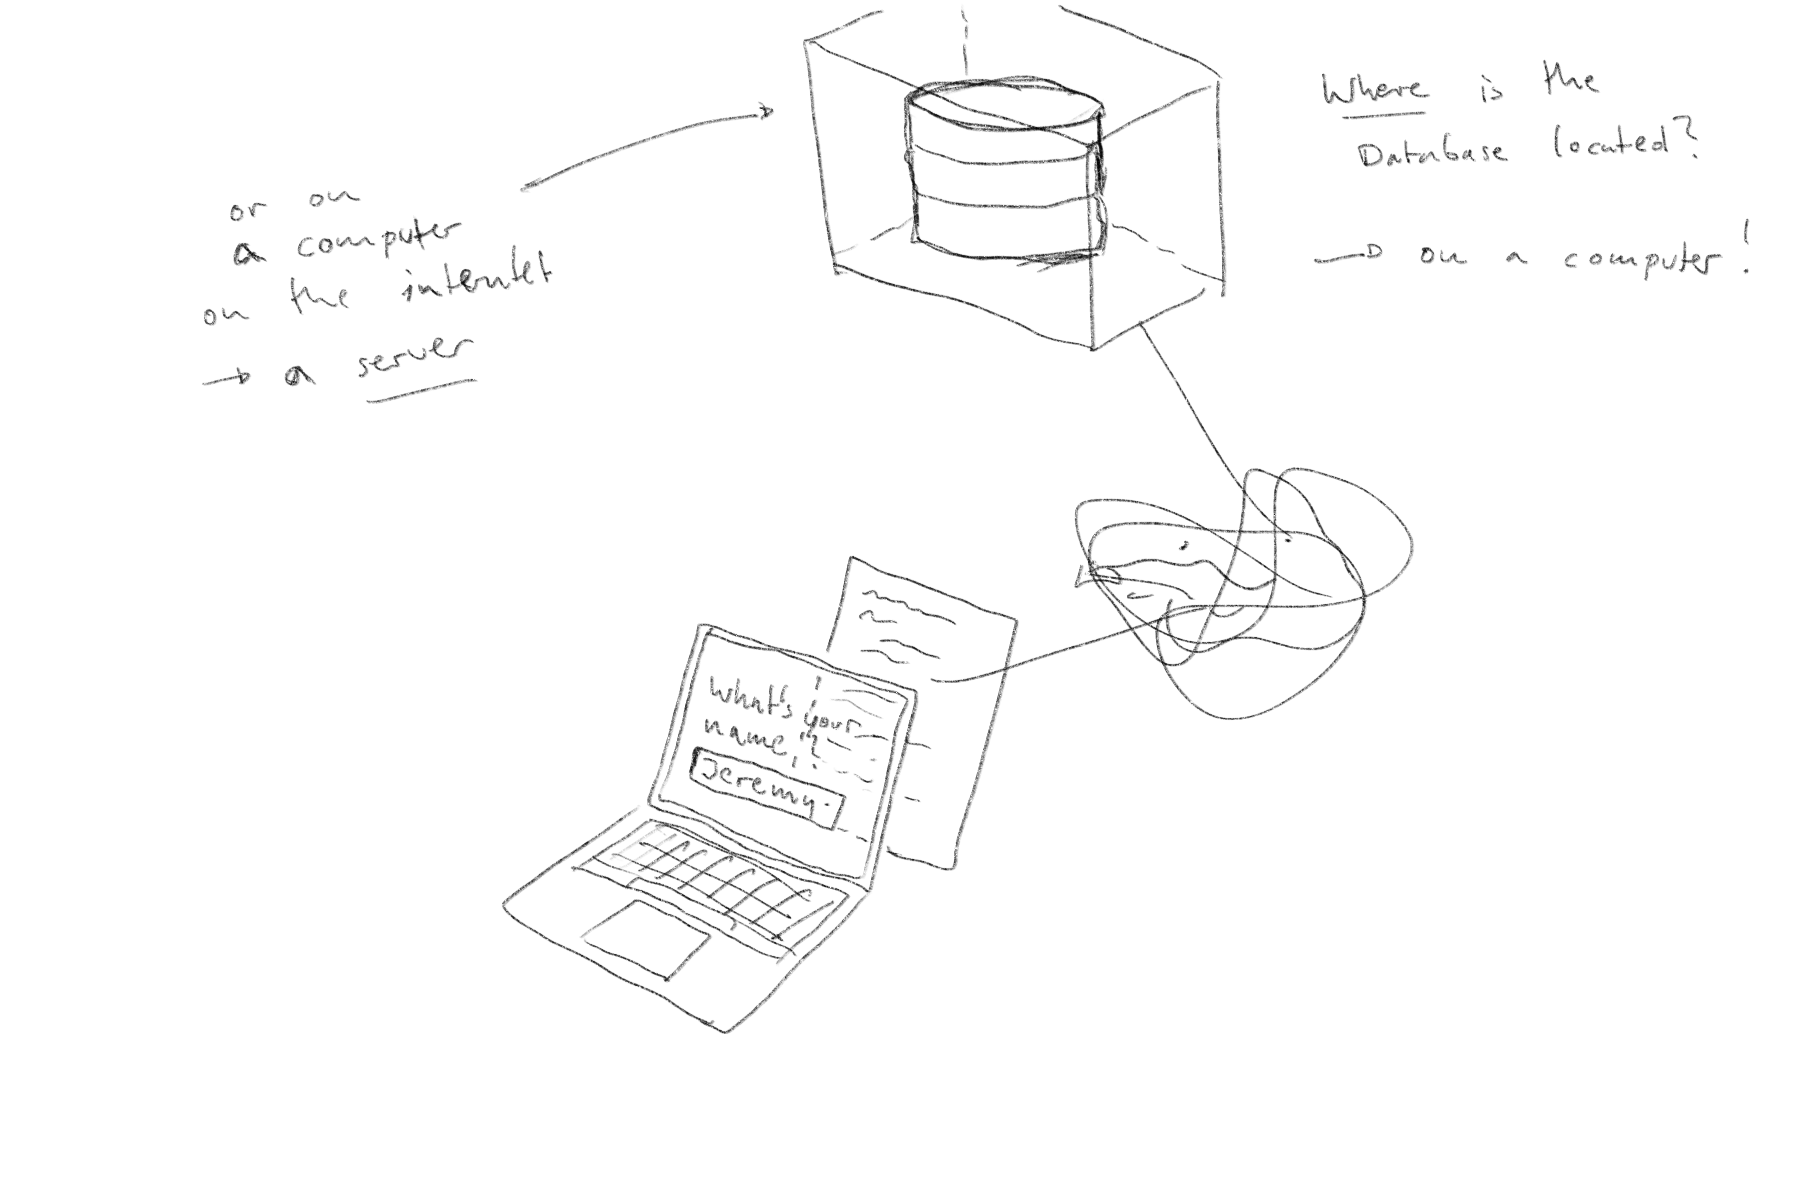 Where is the
Database located?
→ on a computer!
or on
a computer
on the internet
→ a server
What's your
name?
Jeremy